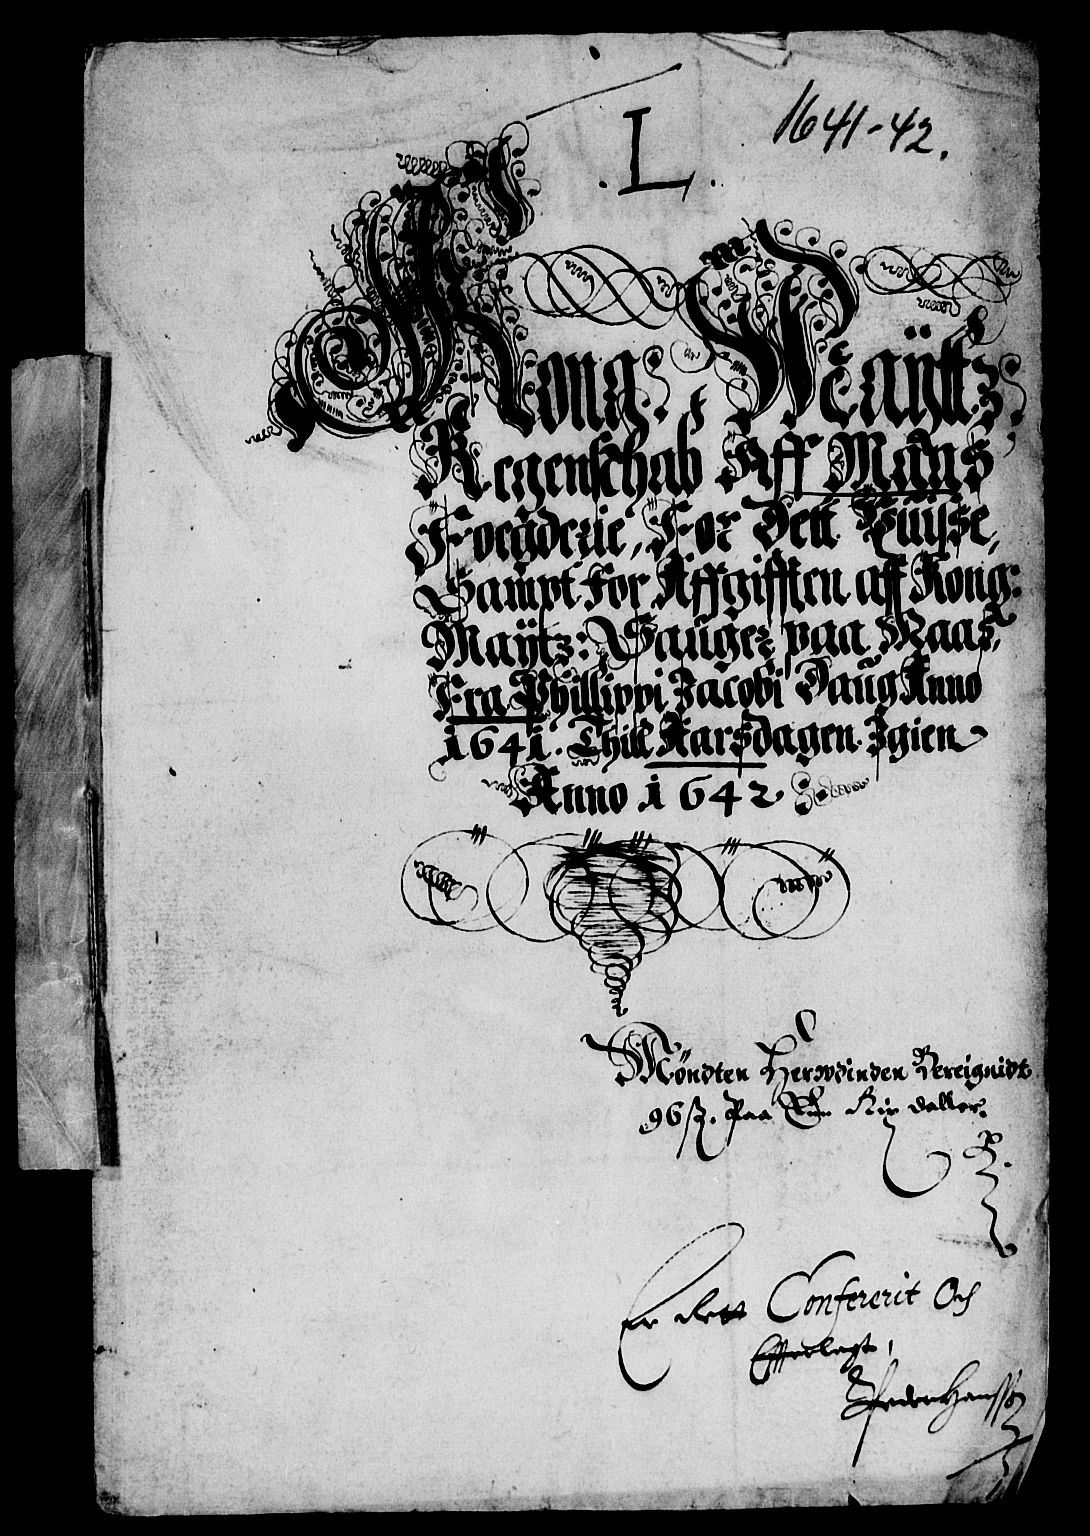 1641-42.
. L .
Kong: Maÿttz
Regenschab Aff Maas
Foegderie, For Dett Thüisse,
Sampt for Affgifften aff Kong:
Maÿtz: Sauger paa Maas,
Fra Phillippi Jacobi Daug Anno
1641. Thill Aarsdagen Igien
Anno 1642
Möndten Herwdinden Bereignidt
96 ß. Paa Enn Rix daller.
Er dett Confererit Och
Effterlagt,
Peder Hanssøn